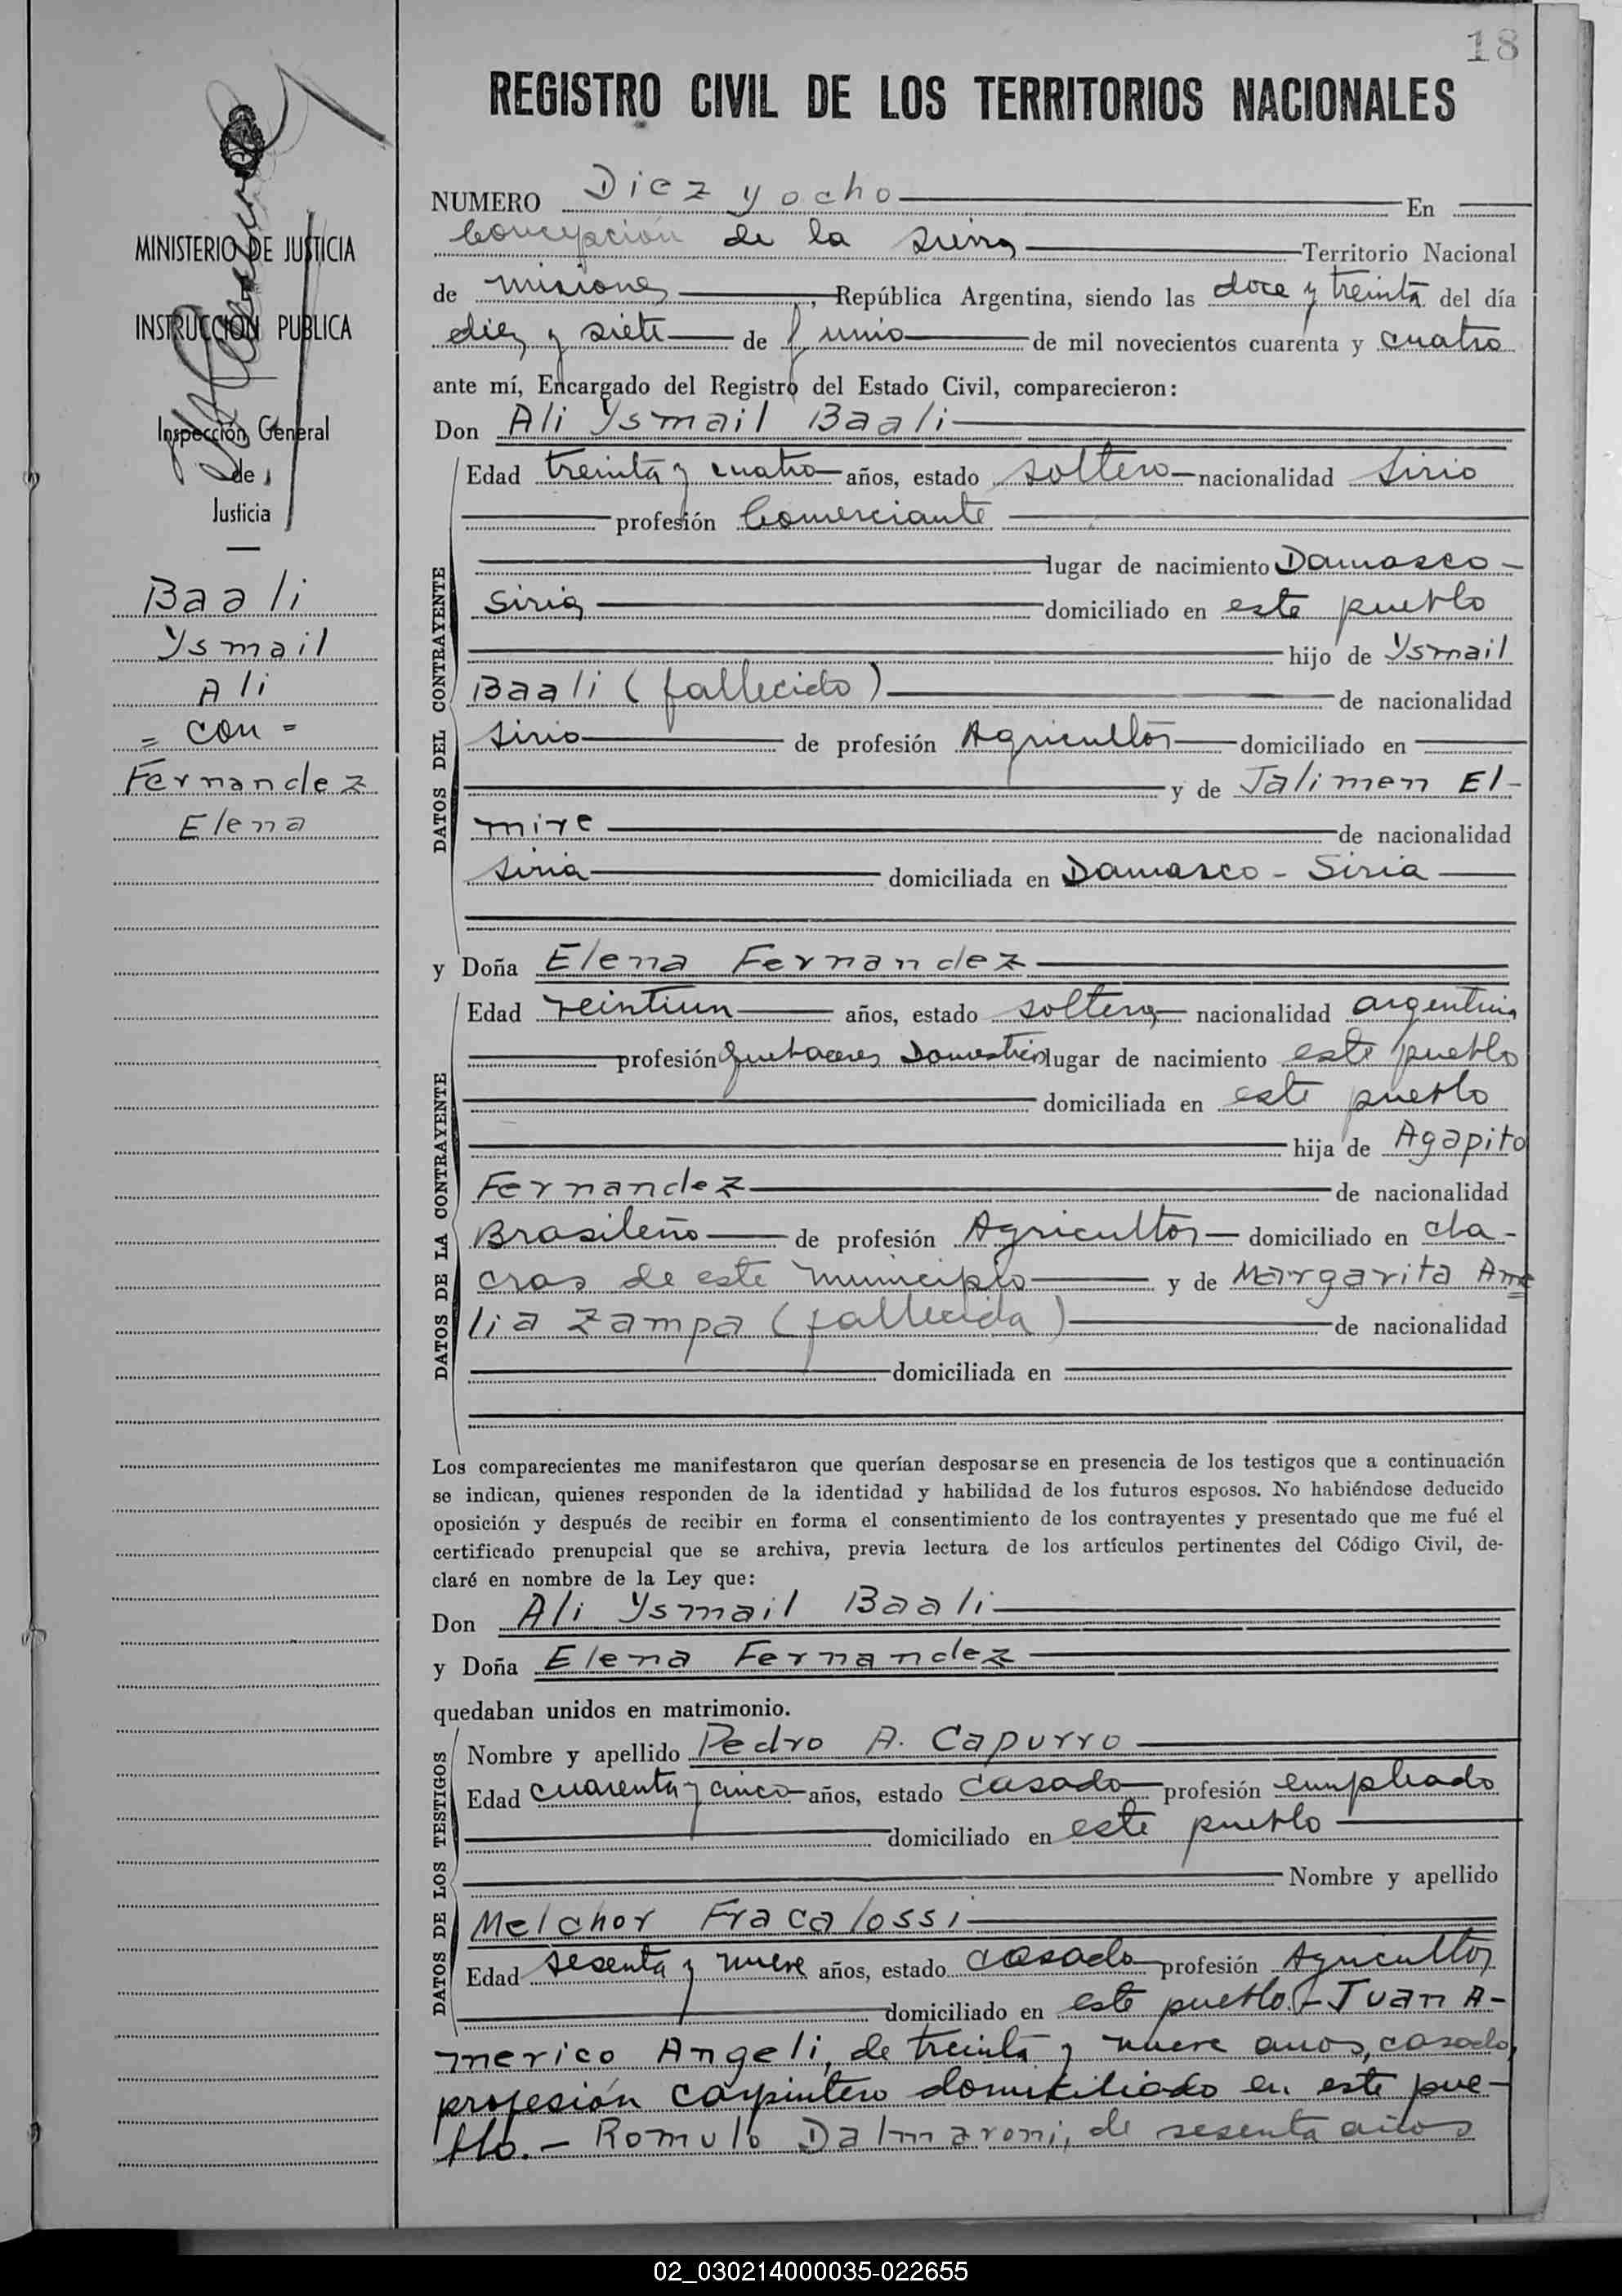 18
REGISTRO CIVIL DE LOS TERRITORIOS NACIONALES
MINISTERIO DE JUSTICIA
E
INSTRUCCIÓN PUBLICA
Inspección General
de
Justicia
Baali
Ysmail
Ali
= con =
Fernandez
Elena
NUMERO Diez y ocho En
Concepción de la Sierra Territorio Nacional
de Misiones, República Argentina, siendo las doce y treinta del día
diez y siete de Junio de mil novecientos cuarenta y cuatro
ante mí, Encargado del Registro del Estado Civil, comparecieron:
Don Ali Ysmail Baali
DATOS DEL CONTRAYENTE
Edad treinta y cuatro años, estado soltero nacionalidad Sirio
profesión Comerciante
lugar de nacimiento Damasco -
Siria domiciliado en este pueblo
hijo de Ysmail
Baali (fallecido) de nacionalidad
Sirio de profesión Agricultor domiciliado en
y de Jalimen El-
mire de nacionalidad
Siria domiciliada en Damasco - Siria
y Doña Elena Fernandez
DATOS DE LA CONTRAYENTE
Edad veintiun años, estado soltera nacionalidad argentina
profesión Quehaceres Domesticos lugar de nacimiento este pueblo
domiciliada en este pueblo
hija de Agapito
Fernandez de nacionalidad
Brasileño de profesión Agricultor domiciliado en cha-
cras de este municipio y de Margarita Ame
lia Zampa (fallecida) de nacionalidad
domiciliada en
Los comparecientes me manifestaron que querían desposarse en presencia de los testigos que a continuación
se indican, quienes responden de la identidad y habilidad de los futuros esposos. No habiéndose deducido
oposición y después de recibir en forma el consentimiento de los contrayentes y presentado que me fué el
certificado prenupcial que se archiva, previa lectura de los artículos pertinentes del Código Civil, de-
claré en nombre de la Ley que:
Don Ali Ysmail Baali
y Doña Elena Fernandez
quedaban unidos en matrimonio.
DATOS DE LOS TESTIGOS
Nombre y apellido Pedro A. Capurro
Edad cuarenta y cinco años, estado casado profesión empleado
domiciliado en este pueblo
Nombre y apellido
Melchor Fracalossi
Edad sesenta y nueve años, estado casado profesión Agricultor
domiciliado en este pueblo.- Juan A-
merico Angeli, de treinta y nueve años, casado,
profesión carpintero domiciliado en este pue-
blo.- Romulo Dalmaroni, de sesenta años
02_030214000035-022655